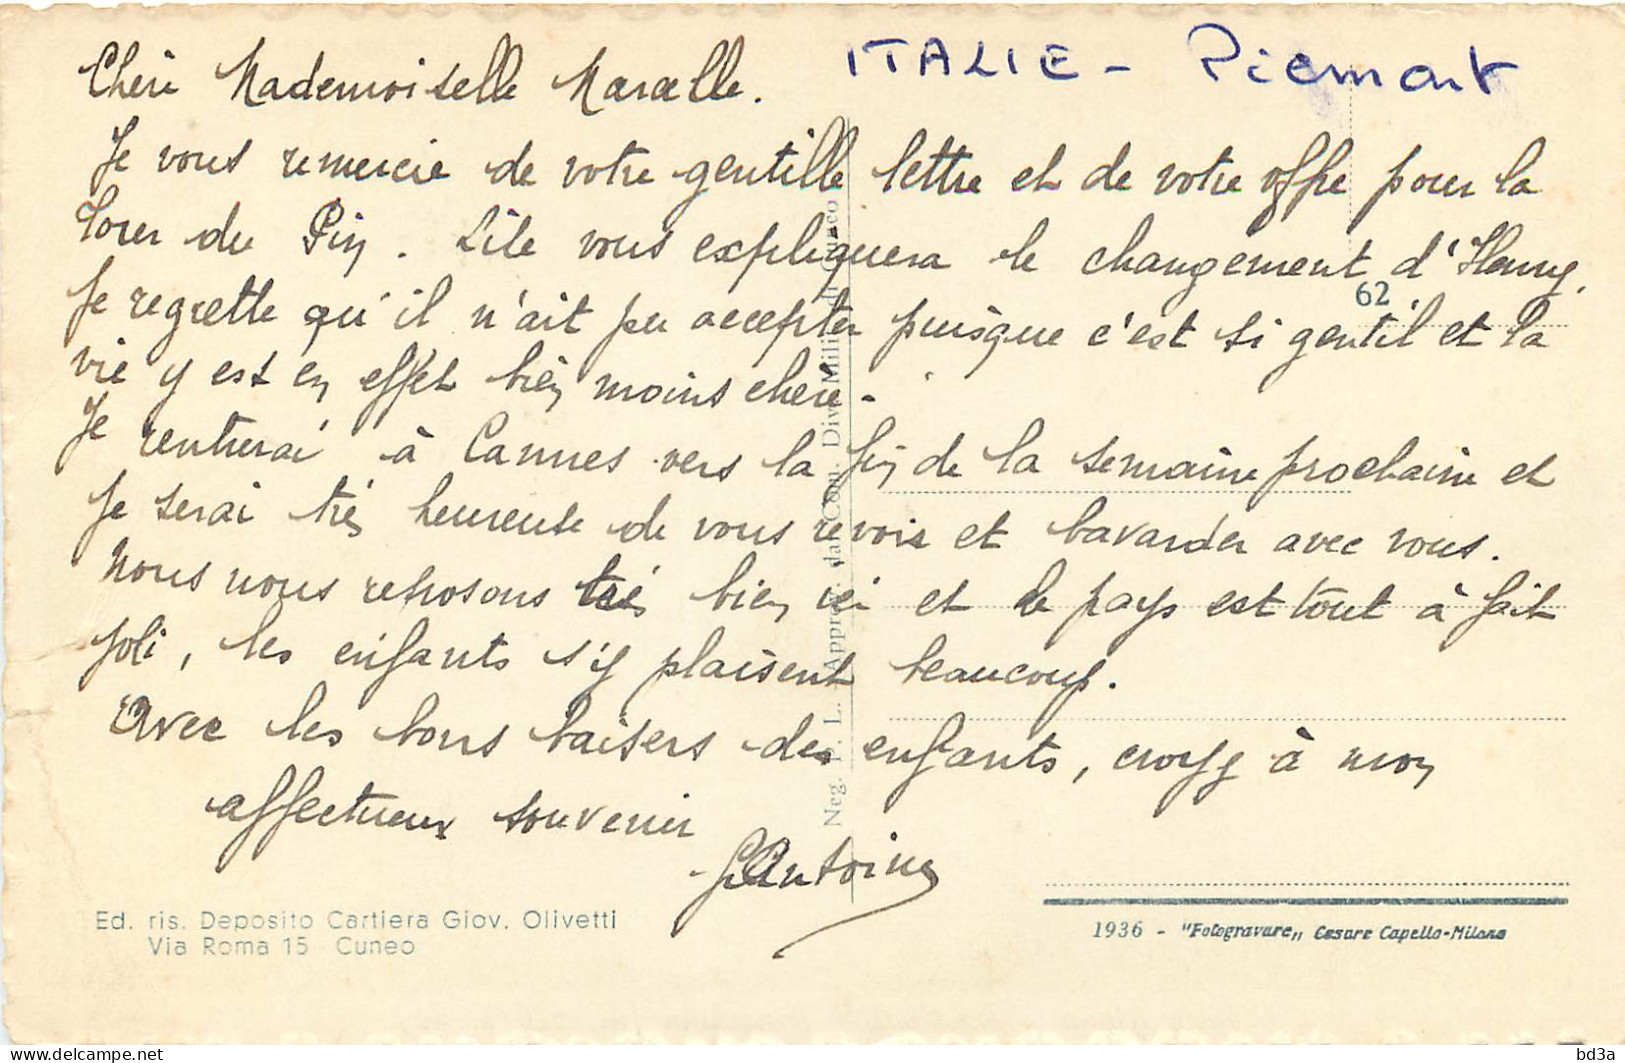 ITALIE - Piemont
Chère Mademoiselle Marcelle.
Je vous remercie de votre gentille lettre et de votre offre pour la
Tour du Pin. Lile vous expliquera le changement d'Henry.
Je regrette qu'il n'ait pu accepter puisque c'est si gentil et la
vie y est en effet bien moins chère -
Je rentrerai à Cannes vers la fin de la semaine prochaine et
je serai très heureuse de vous revoir et bavarder avec vous.
Nous nous reposons très bien ici et le pays est tout à fait
joli, les enfants s'y plaisent beaucoup.
Avec les bons baisers des enfants, croyez à mon
affectueux souvenir
GAntoine
62
Neg. F. L. Approv. dal Com. Div. Milit. di Cuneo
Ed. ris. Deposito Cartiera Giov. Olivetti
Via Roma 15 Cuneo
1936 - "Fotogravure„ Cesare Capello-Milano
delcampe.net
bd3a